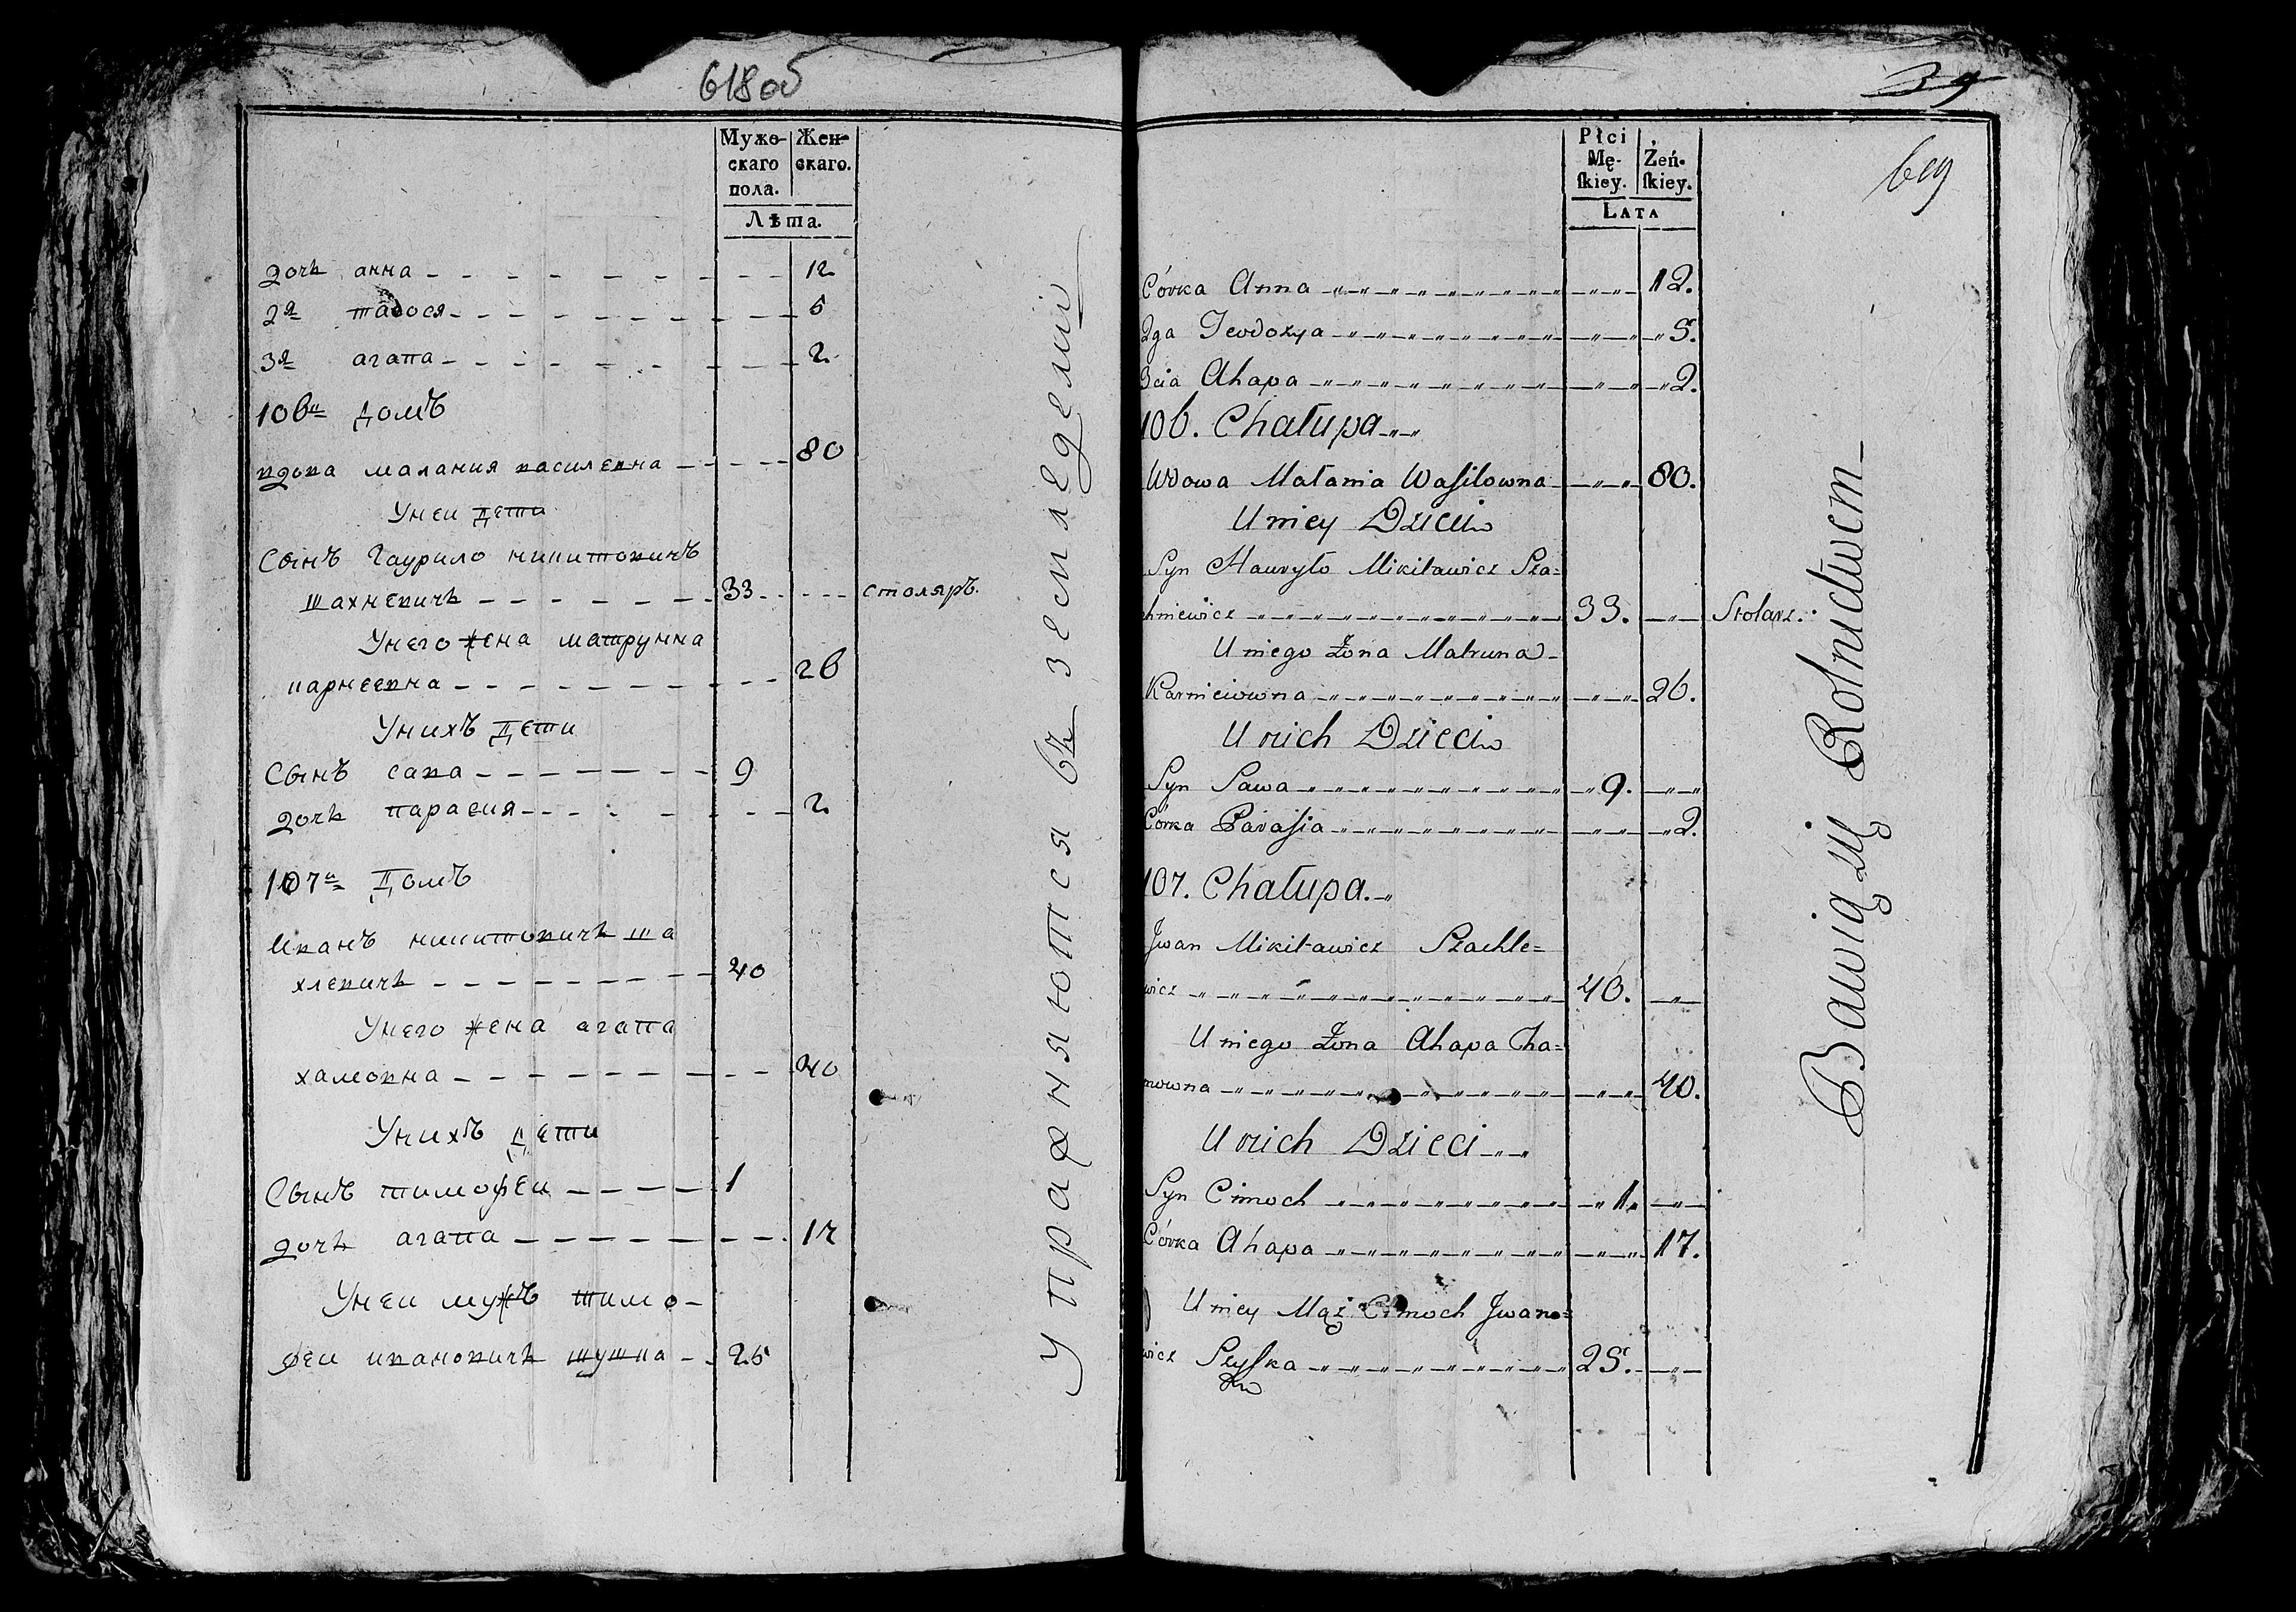 618об
Мужескаго пола. | Женскаго.
Лѣта.
дочь анна 12
2я тадося 5
3я агапа 2
106и домъ
вдова малания василевна 80
Унеи дети
Сынъ Гаурило никитовичъ
шахневичь 33 столяръ.
Унего жена матрунна
карнеевна 26
Унихъ дети
Сынъ сава 9
дочь парасия 2
107и Домъ
Иванъ никитовичь ша
хлевичь 40
Унего жена агапа
хамовна 40
Унихъ дети
Сынъ тимофеи 1
дочь агапа 17
Унеи мужъ тимо-
феи ивановичь шушка 25
упражняются въ земледелии
39
619
Płci Męskiey. | Żeńskiey.
Lata
Córka Anna 12.
2ga Teodozya 5.
3cia Ahapa 2.
106. Chałupa
Wdowa Małania Wasilowna 80.
U niey Dzieci
Syn Hawryło Mikitawicz Sza=
chniewicz 33. Stolarz.
U niego Żona Matruna
Karnieiowna 26.
U nich Dzieci
Syn Sawa 9.
Córka Parasia 2.
107. Chałupa.
Jwan Mikitawicz Szachle=
wicz 40.
U niego Żona Ahapa Cha=
mowna 40.
U nich Dzieci
Syn Cimoch 1.
Córka Ahapa 17.
U niey Mąż Cimoch Jwano=
wicz Szyszka 25.
Bawią się Rolnictwem